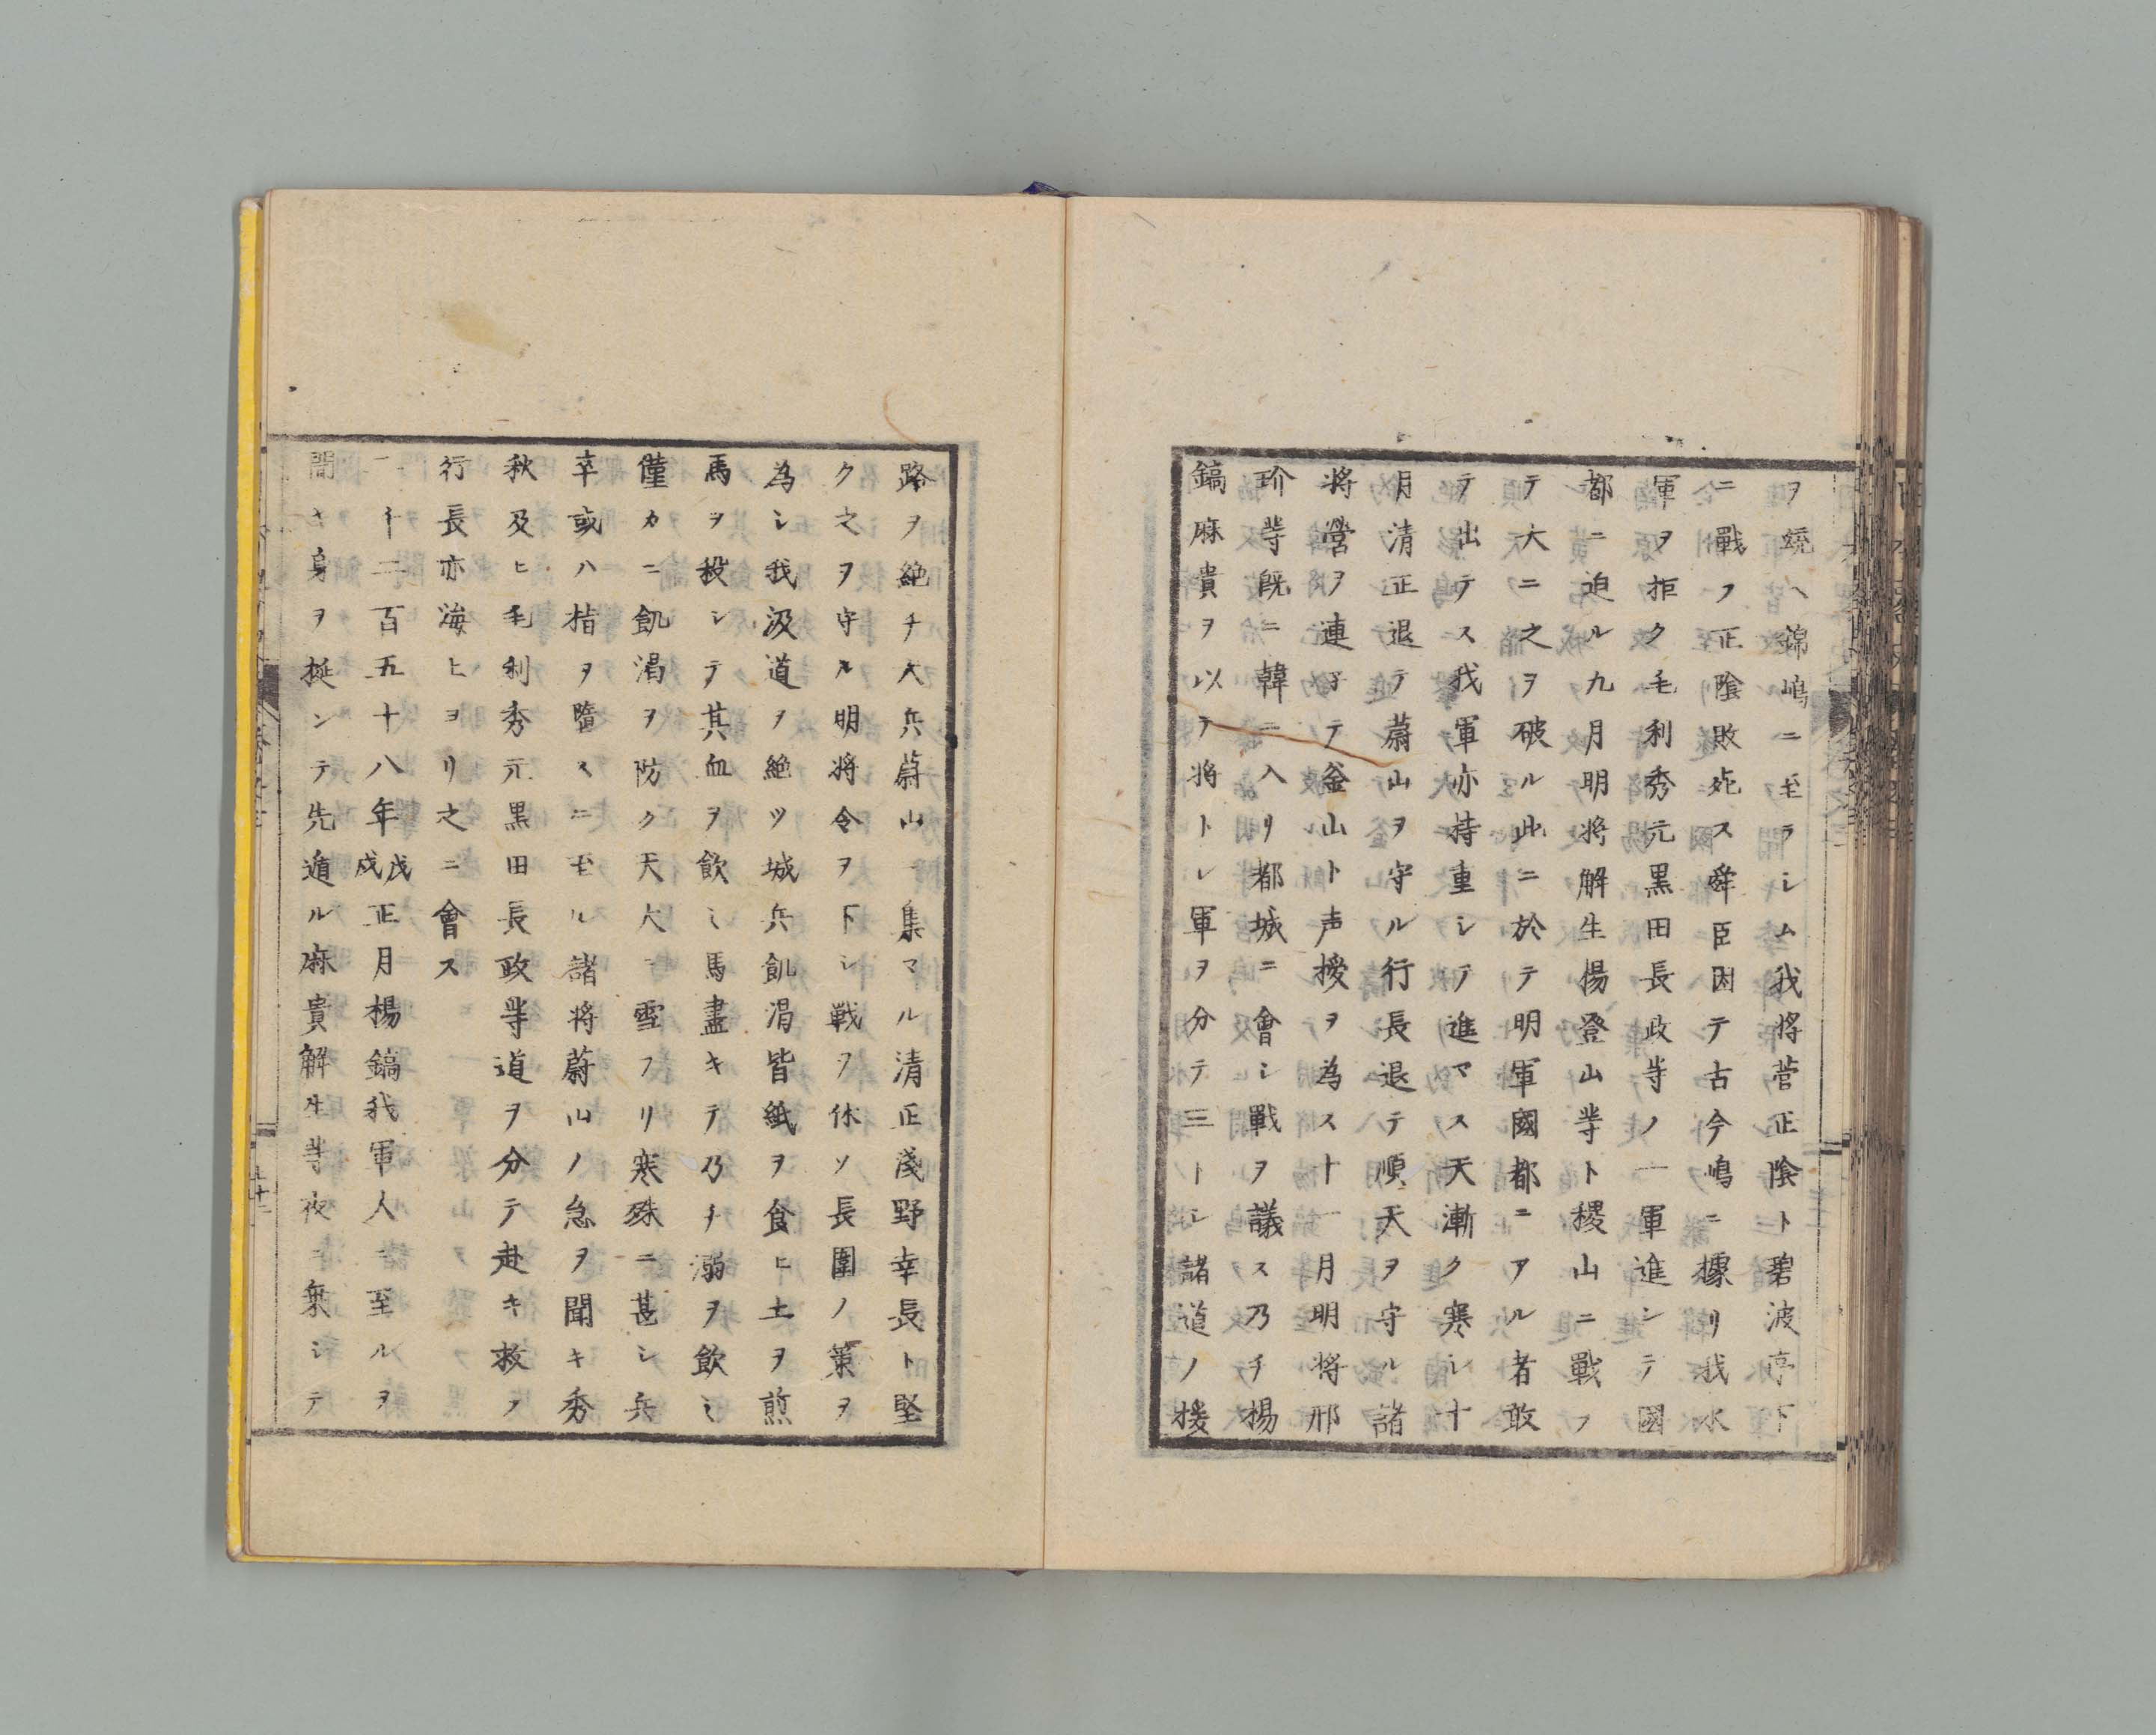 ヲ繞ヘ錦嶋ニ至ラシム我将菅正陰ト碧波亭下
ニ戰フ正陰敗死ス舜臣因テ古今嶋ニ據リ我水
軍ヲ拒ク毛利秀元黒田長政等ノ一軍進ンテ國
都ニ迫ル九月明将解生楊登山等ト稷山ニ戰フ
テ大ニ之ヲ破ル此ニ於テ明軍國都ニアル者敢
テ出テス我軍亦持重シテ進マス天漸ク寒シ十
月清正退テ蔚山ヲ守ル行長退テ順天ヲ守ル諸
将營ヲ連子テ釜山ト声援ヲ為ス十一月明将邢
玠等既ニ韓ニ入リ都城ニ會シ戰ヲ議ス乃チ楊
鎬麻貴ヲ以テ将トシ軍ヲ分テ三トシ諸道ノ援
路ヲ絶チ大兵蔚山ニ集マル清正淺野幸長ト堅
ク之ヲ守ル明将令ヲ下シ戦ヲ休ソ長圍ノ策ヲ
為シ我汲道ヲ絶ツ城兵飢渇皆紙ヲ食ヒ土ヲ煎
馬ヲ投シテ其血ヲ飲ミ馬盡キテ乃チ溺ヲ飲ミ
僅カニ飢渇ヲ防ク天大ニ雪フリ寒殊ニ甚シ兵
卒或ハ指ヲ墮スニ至ル諸将蔚山ノ急ヲ聞キ秀
秋及ヒ毛利秀元黒田長政等道ヲ分テ赴キ救フ
行長亦海ヒヨリ之ニ會ス
二千二百五十八年戊戌正月楊鎬我軍人ニ至ルヲ
聞キ身ヲ挺ンテ先遁ル麻貴解生等夜ニ乘シテ